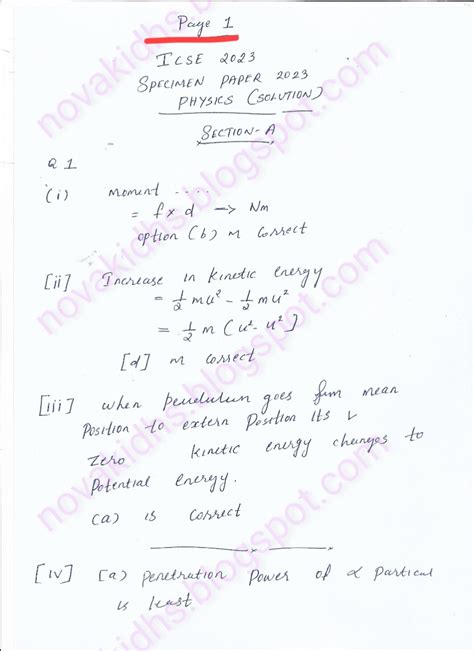 Page 1
ICSE 2023
SPECIMEN PAPER 2023
PHYSICS (SOLUTION)
SECTION-A
Q 1
(i) moment ....
= f x d → Nm
option (b) is correct
[ii] Increase in kinetic energy
= 1/2 mu² - 1/2 mu²
= 1/2 m (u² - u²)
[d] is correct
[iii] when pendulum goes from mean
Position to extern Position its v
zero kinetic energy changes to
Potential energy.
(a) is correct
[iv] (a) penetration Power of α partical
is least
novakidhs.blogspot.com
novakidhs.blogspot.com